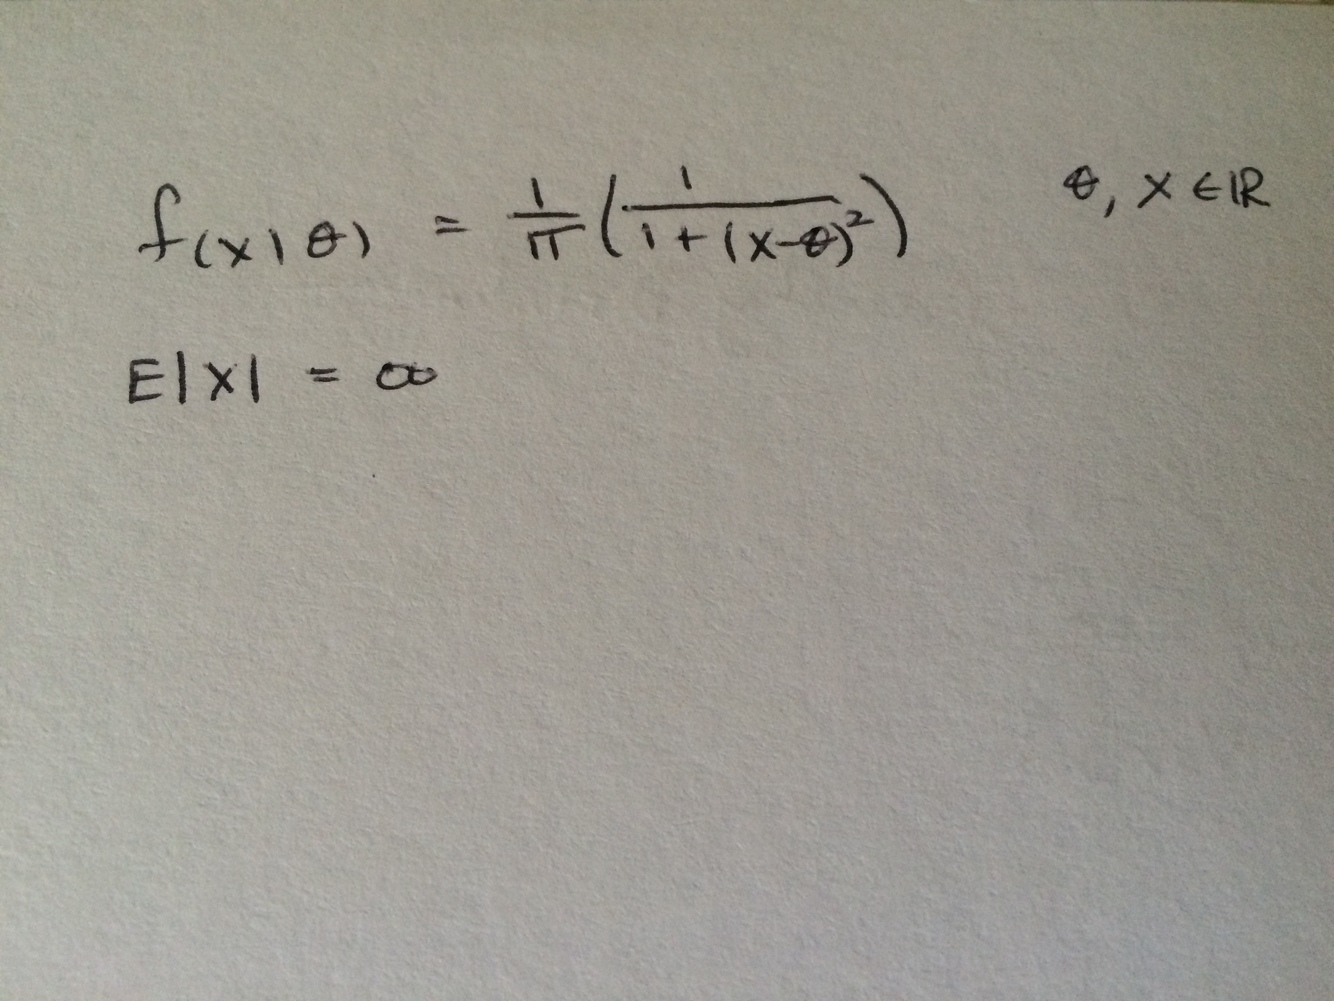 f(x|θ) = 1/π (1/(1+(x-θ)²)) θ, x ∈ ℝ
E|X| = ∞